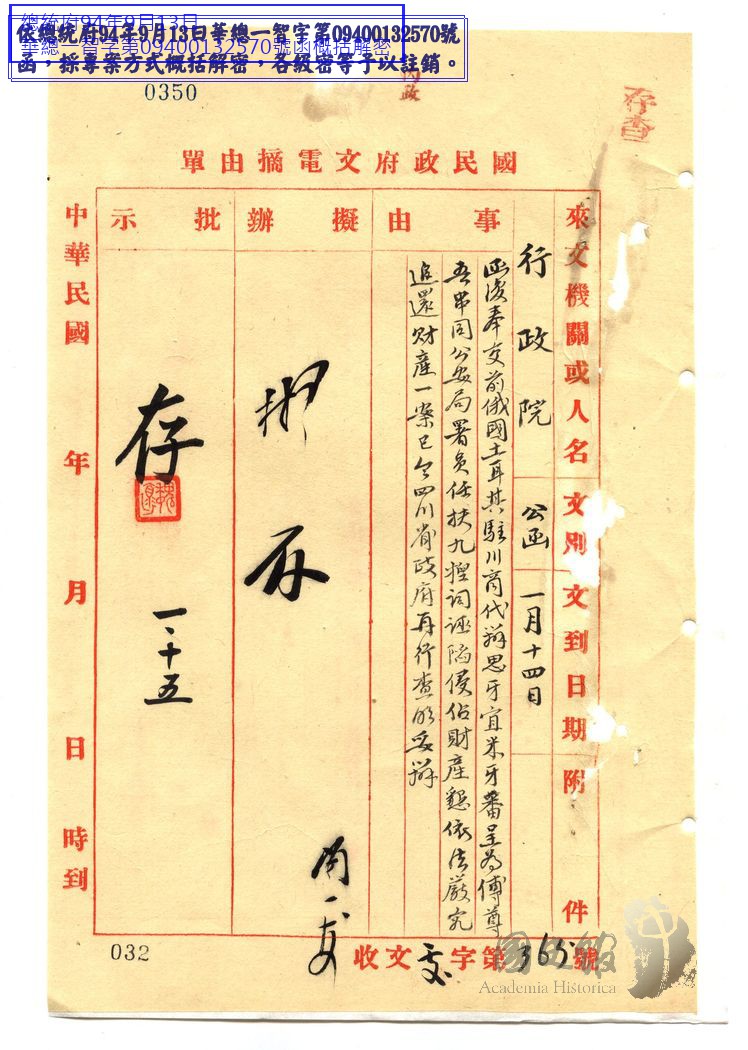 總統府94年9月13日
華總一智字第09400132570號函概括解密
依總統府94年9月13日華總一智字第09400132570號
函，採專案方式概括解密，各級密等予以註銷。
0350
內政
存查
國民政府文電摘由單
來文機關或人名
行政院
文別
公函
文到日期
一月十四日
附件
事由
函復奉交前俄國土耳其駐川商代辦思牙宜米牙番呈為傅尊
吾串同公安局署員任扶九捏詞誣陷侵佔財產懇依法嚴究
追還財產一案已令四川省政府再行查明妥辦
擬辦
擬存
批示
存
一、十五
中華民國 年 月 日 時到
收文 字第365號
032
國史館
Academia Historica